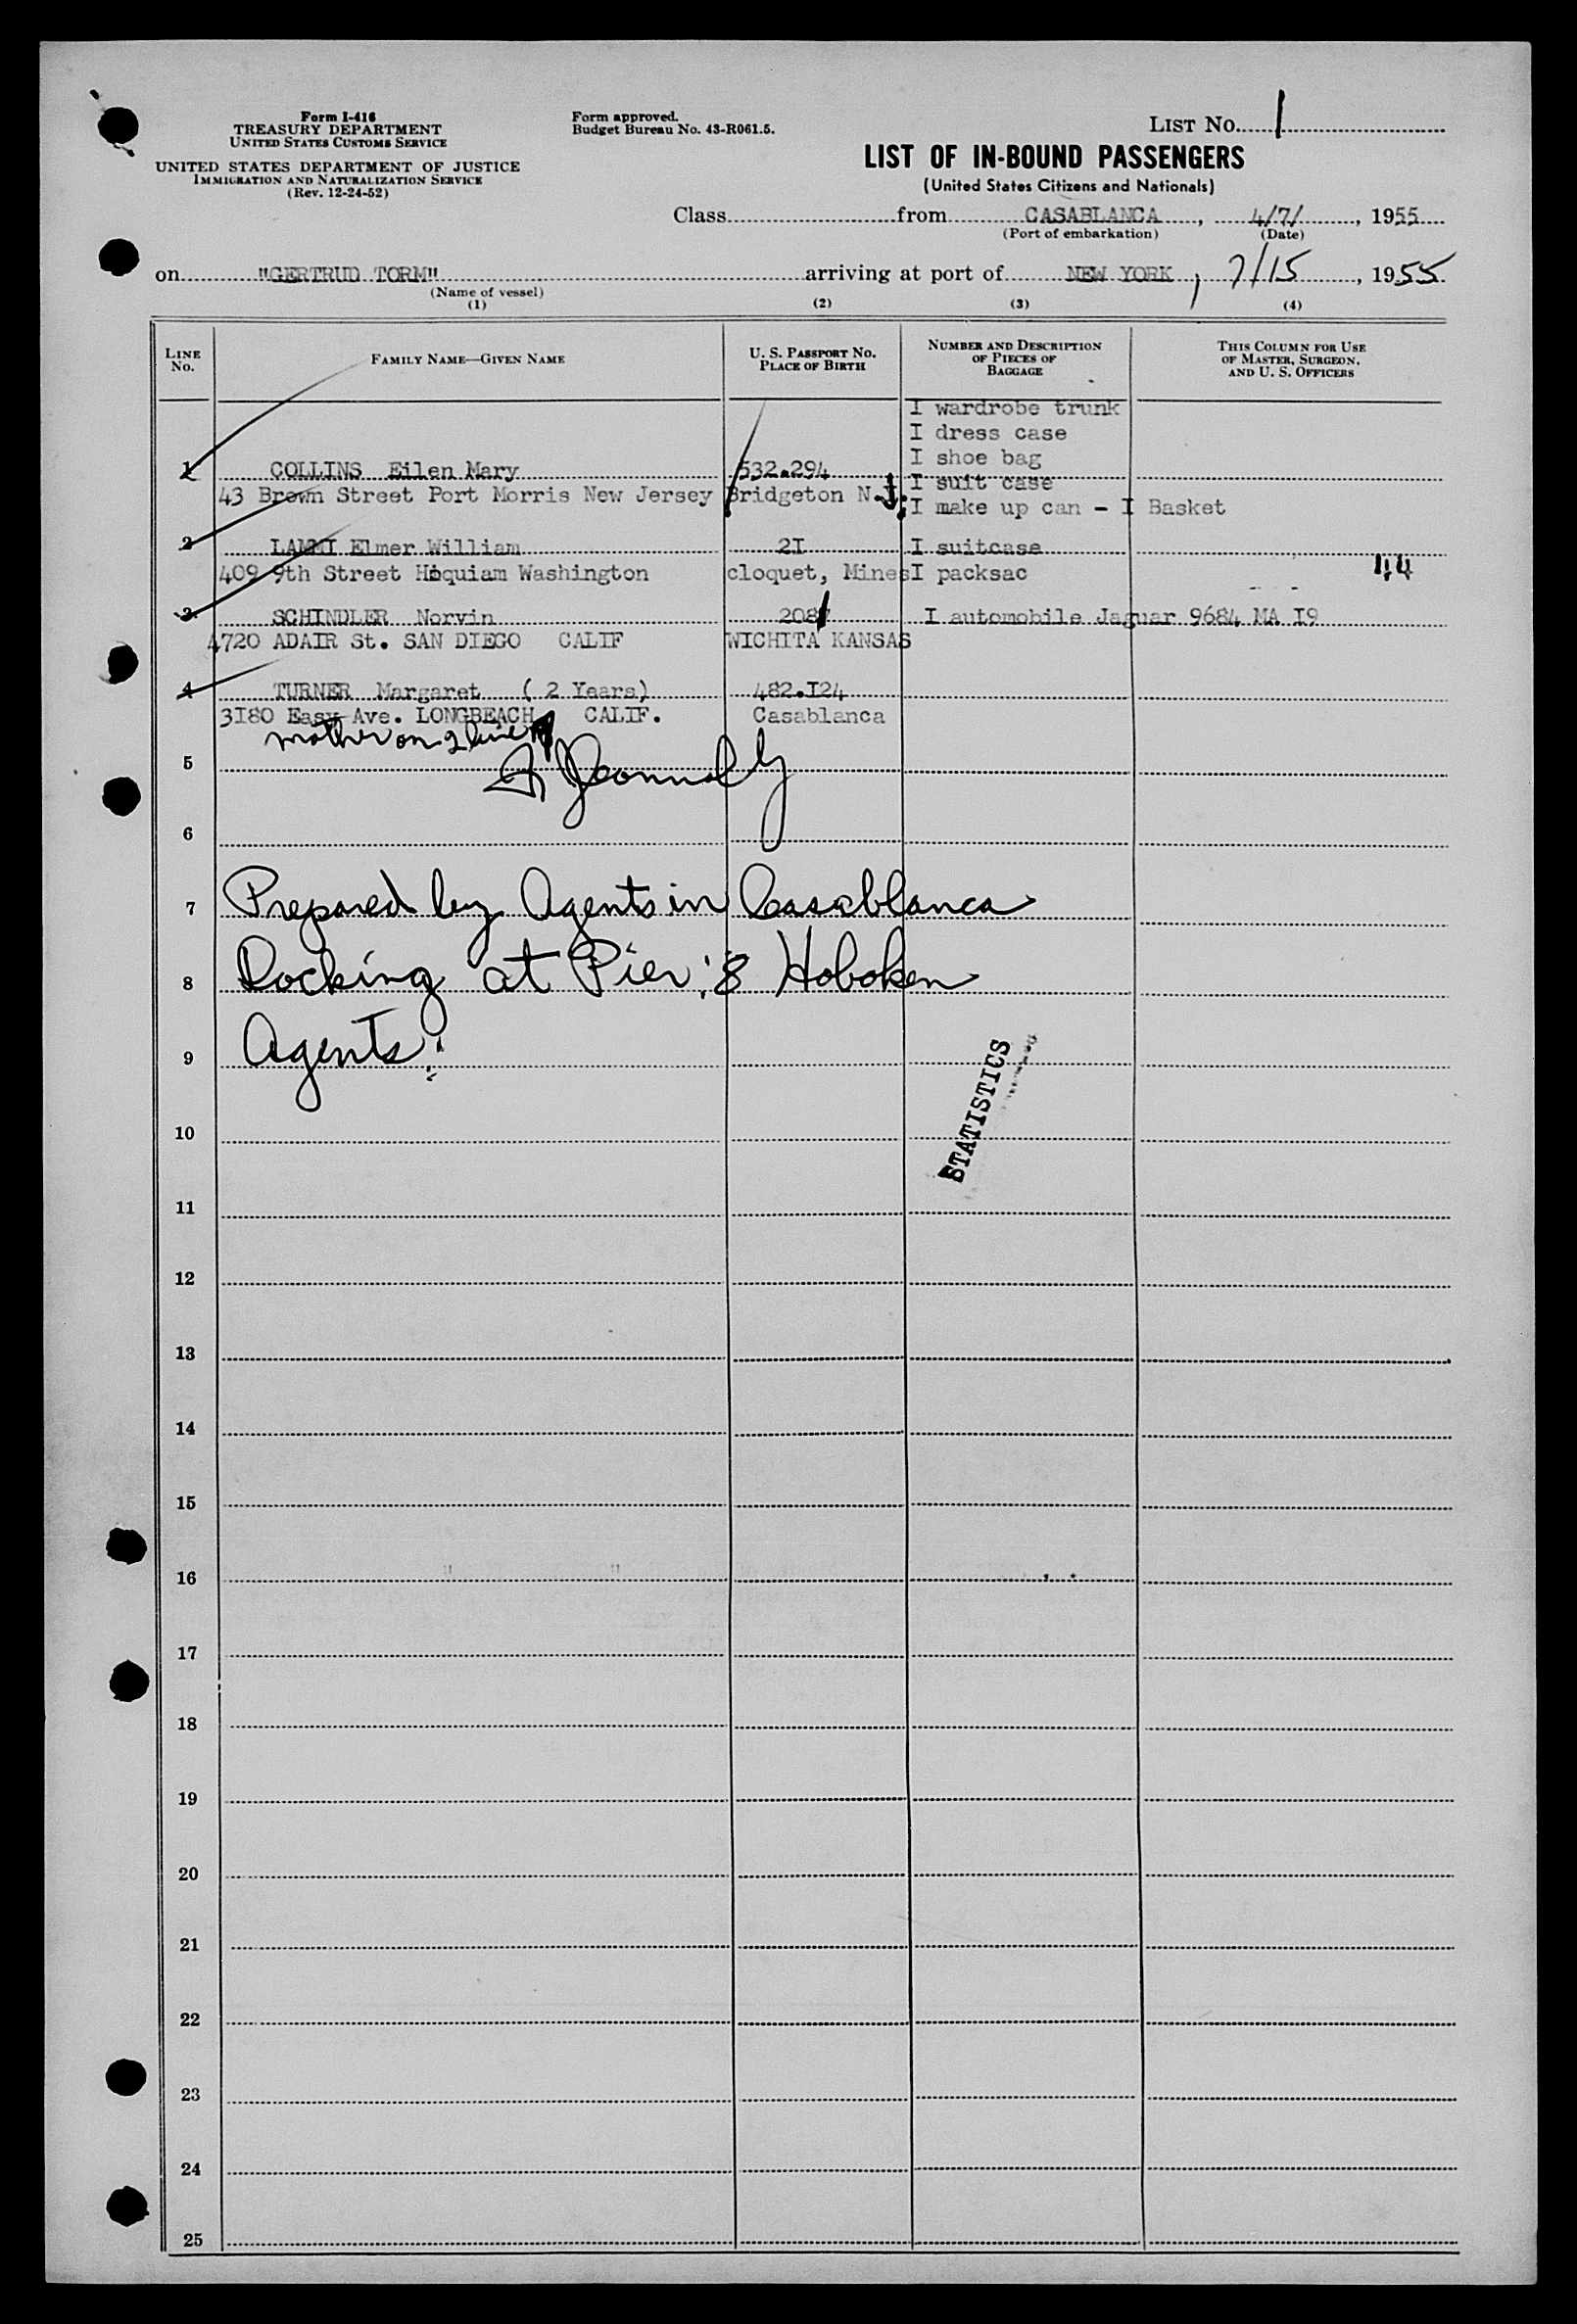 Form I-416
TREASURY DEPARTMENT
UNITED STATES CUSTOMS SERVICE
UNITED STATES DEPARTMENT OF JUSTICE
IMMIGRATION AND NATURALIZATION SERVICE
(Rev. 12-24-52)
Form approved.
Budget Bureau No. 43-R061.5.
LIST No. 1
LIST OF IN-BOUND PASSENGERS
(United States Citizens and Nationals)
Class from CASABLANCA, 4/7/, 1955
(Port of embarkation) (Date)
on "GERTRUD TORM" arriving at port of NEW YORK, 7/15, 1955
(Name of vessel)
(1) (2) (3) (4)
LINE No. FAMILY NAME—GIVEN NAME U. S. PASSPORT No. PLACE OF BIRTH NUMBER AND DESCRIPTION OF PIECES OF BAGGAGE THIS COLUMN FOR USE OF MASTER, SURGEON, AND U. S. OFFICERS
I wardrobe trunk
I dress case
I shoe bag
1 COLLINS Eilen Mary 532.294
I suit case
43 Brown Street Port Morris New Jersey Bridgeton N.J.
I make up can - I Basket
2 LAMMI Elmer William 2I I suitcase
409 9th Street Hoquiam Washington cloquet, Mines I packsac 44
3 SCHINDLER Norvin 2081 I automobile Jaguar 9684 MA I9
4720 ADAIR St. SAN DIEGO CALIF WICHITA KANSAS
4 TURNER Margaret ( 2 Years) 482.I24
3I80 Easy Ave. LONGBEACH CALIF. Casablanca
mother on 2 line
5
6
7 Prepared by Agents in Casablanca
8 Docking at Pier: 8 Hoboken
9 Agents:
STATISTICS
10
11
12
13
14
15
16
17
18
19
20
21
22
23
24
25